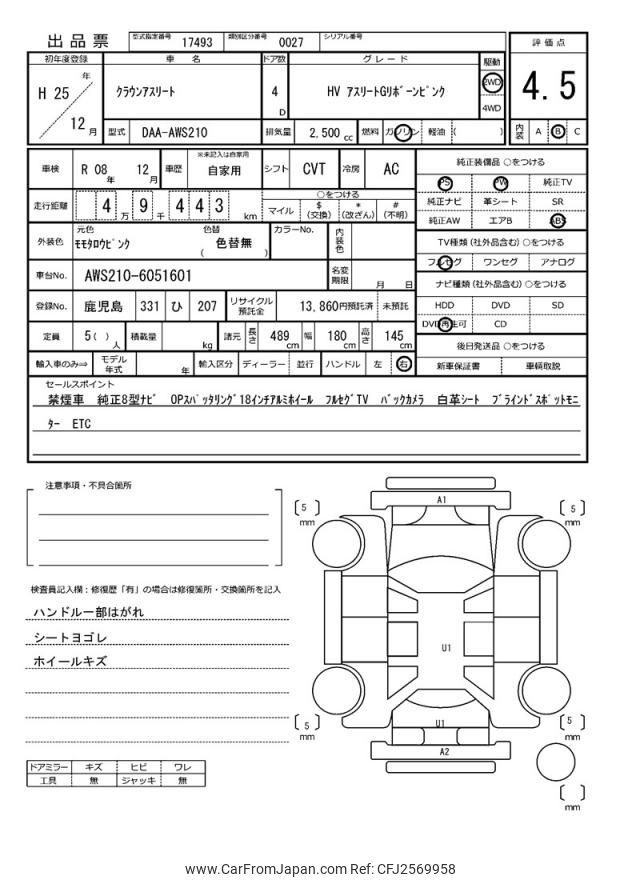 出品票 型式指定番号 17493 類別区分番号 0027 シリアル番号
評価点
初年度登録 車名 ドア数 グレード 駆動
H 25 年 12 月 クラウンアスリート 4 D HV アスリートGリボーンピンク 2WD 4WD
4.5
型式 DAA-AWS210 排気量 2,500 cc 燃料 ガソリン 軽油 ( )
内装 A B C
車検 R 08 年 12 月 車歴 ※未記入は自家用 自家用 シフト CVT 冷房 AC
純正装備品 ○をつける
PS PW 純正TV
純正ナビ 革シート SR
純正AW エアB ABS
走行距離 4 万 9 千 4 4 3 km ○をつける マイル $ (交換) * (改ざん) # (不明)
TV種類 (社外品含む) ○をつける
フルセグ ワンセグ アナログ
外装色 元色 モモタロウピンク 色替 ( 色替無 ) カラーNo. 内装色
車台No. AWS210-6051601 名変期限 月 日
ナビ種類 (社外品含む) ○をつける
HDD DVD SD
DVD再生可 CD
登録No. 鹿児島 331 ひ 207 リサイクル預託金 13,860円預託済 未預託
定員 5 ( ) 人 積載量 kg 諸元 長さ 489 cm 幅 180 cm 高さ 145 cm
後日発送品 ○をつける
新車保証書 車輌取説
輸入車のみ⇒ モデル年式 年 輸入区分 ディーラー 並行 ハンドル 左 右
セールスポイント
禁煙車 純正8型ナビ OPスパッタリング18インチアルミホイール フルセグTV バックカメラ 白革シート ブラインドスポットモニ
ター ETC
注意事項・不具合箇所
検査員記入欄：修復歴「有」の場合は修復箇所・交換箇所を記入
ハンドル一部はがれ
シートヨゴレ
ホイールキズ
ドアミラー キズ ヒビ ワレ
工具 無 ジャッキ 無
A1
5 mm
5 mm
U1
U1
5 mm
5 mm
A2
mm
www.CarFromJapan.com Ref: CFJ2569958